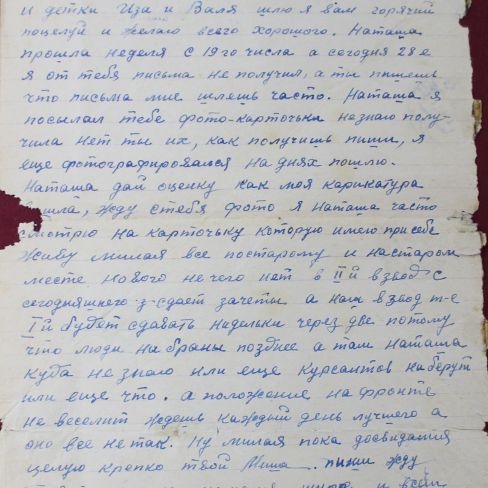 и детки Иза и Валя шлю я вам горячий
поцелуй и желаю всего хорошого. Наташа
прошла неделя с 19го числа а сегодня 28е
я от тебя письма не получил, а ты пишешь
что письма мне шлешь часто. Наташа я
посылал тебе фото-карточьки незнаю полу-
чила нет ты их, как получишь пиши, я
еще фотографировался на днях пошлю.
Наташа дай оценку как моя карикатура
вышла, жду стебя фото я Наташа часто
смотрю на карточьку которую имею присебе
живу милая все постарому и настаром
месте нового не чего нет II й взвод с
сегодняшнего з-сдает зачеты а наш взвод т-е
I й будет сдавать недельки через две потому
что люди на браны позднее а там Наташа
куда не знаю или еще курсантов наберут
или еще что. а положение на фронте
не веселит ждешь каждый день лучшего а
оно все не так. Ну милая пока досвидания
целую крепко твой Миша. пиши жду
и всем